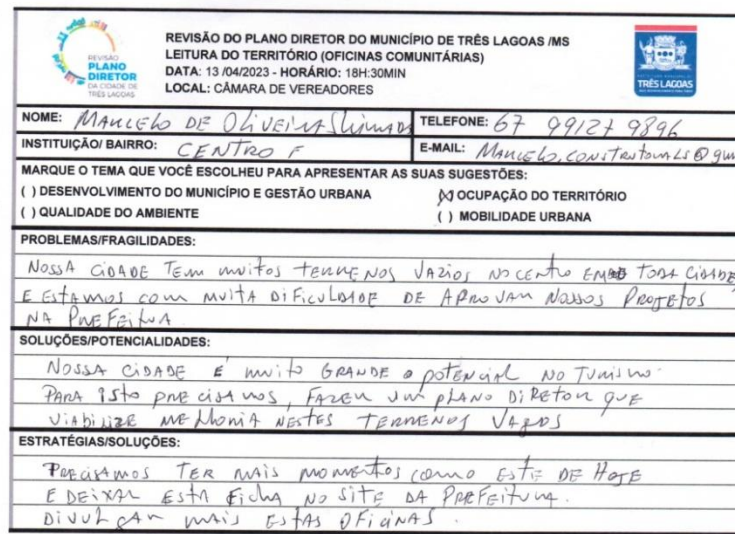 REVISÃO
PLANO
DIRETOR
DA CIDADE DE
TRÊS LAGOAS
REVISÃO DO PLANO DIRETOR DO MUNICÍPIO DE TRÊS LAGOAS /MS
LEITURA DO TERRITÓRIO (OFICINAS COMUNITÁRIAS)
DATA: 13 /04/2023 - HORÁRIO: 18H:30MIN
LOCAL: CÂMARA DE VEREADORES
TRÊS LAGOAS
NOME: MARCELO DE OLIVEIRA
TELEFONE: 67 99127 9896
INSTITUIÇÃO/ BAIRRO: CENTRO
E-MAIL:
MARQUE O TEMA QUE VOCÊ ESCOLHEU PARA APRESENTAR AS SUAS SUGESTÕES:
( ) DESENVOLVIMENTO DO MUNICÍPIO E GESTÃO URBANA (X) OCUPAÇÃO DO TERRITÓRIO
( ) QUALIDADE DO AMBIENTE ( ) MOBILIDADE URBANA
PROBLEMAS/FRAGILIDADES:
NOSSA CIDADE TEM MUITOS TERRENOS VAZIOS NO CENTRO EM TODA CIDADE,
E ESTAMOS COM MUITA DIFICULDADE DE APROVAR NOSSOS PROJETOS
NA PREFEITURA
SOLUÇÕES/POTENCIALIDADES:
NOSSA CIDADE É MUITO GRANDE O POTENCIAL NO TURISMO.
PARA ISTO PRECISAMOS, FAZER UM PLANO DIRETOR QUE
VIABILIZE MELHORIA NESTES TERRENOS VAZIOS
ESTRATÉGIAS/SOLUÇÕES:
PRECISAMOS TER MAIS MOMENTOS COMO ESTE DE HOJE
E DEIXAR ESTA FICHA NO SITE DA PREFEITURA.
DIVULGAR MAIS ESTAS OFICINAS.